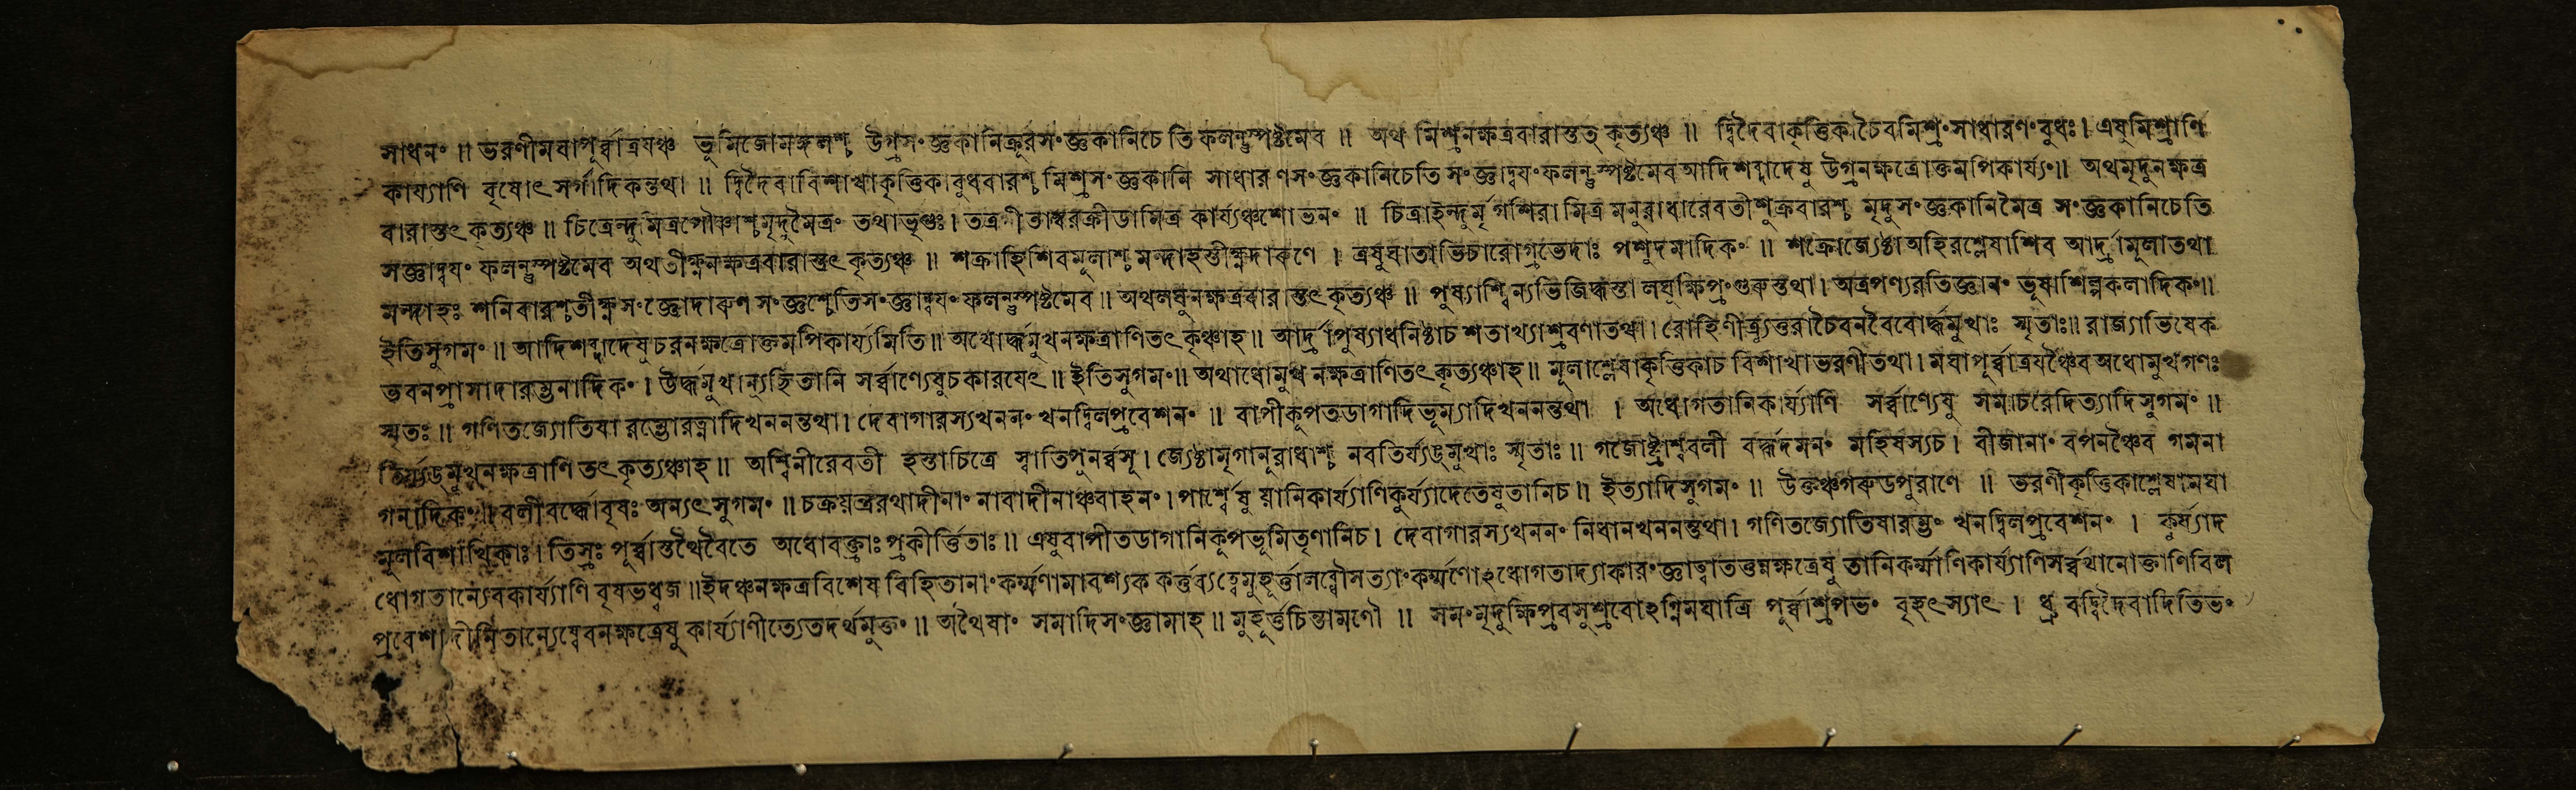 সাধনং ॥ ভরণীমঘাপূর্ব্বাত্রযঞ্চ ভূমিজোমঙ্গলশ্চ উগ্রসংজ্ঞকানিক্রূরসংজ্ঞকানিচেতিফলন্তুস্পষ্টমেব ॥ অথ মিশ্রনক্ষত্রবারাস্তত্ কৃত্যঞ্চ ॥ দ্বিদৈবাকৃত্তিকাচৈবমিশ্রংসাধারণংবুধঃ। এষুমিশ্রাণি
কার্য্যাণি বৃষোৎসর্গাদিকন্তথা ॥ দ্বিদৈবাবিশাখাকৃত্তিকাবুধবারশ্চ মিশ্রসংজ্ঞকানি সাধারণসংজ্ঞকানিচেতি সংজ্ঞাদ্বযংফলন্তুস্পষ্টমেবআদিশব্দাদেষু উগ্রনক্ষত্রোক্তমপিকার্য্যং॥ অথমৃদুনক্ষত্র
বারাস্তৎকৃত্যঞ্চ ॥ চিত্রেন্দুমিত্রপৌষ্ণাশ্চমৃদুমৈত্রং তথাভৃগুঃ। তত্রগীতাম্বরক্রীডামিত্র কার্য্যঞ্চশোভনং ॥ চিত্রাইন্দুর্মৃগশিরা মিত্রমনুরাধারেবতীশুক্রবারশ্চ মৃদুসংজ্ঞকানিমৈত্র সংজ্ঞকানিচেতি
সজ্ঞাদ্বযং ফলন্তুস্পষ্টমেব অথতীক্ষ্ণনক্ষত্রবারাস্তৎকৃত্যঞ্চ ॥ শক্রাহিশিবমূলাশ্চ মন্দাহস্তীক্ষ্ণদারুণে । ত্রষুঘাতাভিচারোগ্রভেদাঃ পশুদমাদিকং ॥ শক্রোজ্যেষ্ঠাঅহিরশ্লেষাশিব আর্দ্রামূলাতথা
মন্দাহঃ শনিবারশ্চতীক্ষ্ণসংজ্ঞোদারুণ সংজ্ঞশ্চেতিসংজ্ঞাদ্বযংফলন্তুস্পষ্টমেব॥ অথলঘুনক্ষত্রবারাস্তৎকৃত্যঞ্চ ॥ পুষ্যাশ্বিন্যভিজিদ্ধস্তা লঘুক্ষিপ্রংগুরুস্তথা। অত্রপণ্যরতিজ্ঞানং ভূষাশিল্পকলাদিকং॥
ইতিসুগমং ॥ আদিশব্দাদেষুচরনক্ষত্রোক্তমপিকার্য্যমিতি॥ অথোর্দ্ধমুখনক্ষত্রাণিতৎকৃঞ্চাহ॥ আর্দ্রাপুষ্যাধনিষ্ঠাচ শতাখ্যাশ্রবণাতথা। রোহিণীত্র্যুত্তরাচৈবনবৈবোর্দ্ধমুখাঃ স্মৃতাঃ॥ রাজ্যাভিষেক
ভবনপ্রাসাদারম্ভনাদিকং। উর্দ্ধমুখান্যুহিতানি সর্ব্বাণ্যেষুচকারযেৎ॥ ইতিসুগমং॥ অথাধোমুখ নক্ষত্রাণিতৎকৃত্যঞ্চাহ॥ মূলাশ্লেষাকৃত্তিকাচ বিশাখাভরণীতথা। মঘাপূর্ব্বাত্রযঞ্চৈবঅধোমুখগণঃ
স্মৃতঃ॥ গণিতজ্যোতিষারম্ভোরত্নাদিখননন্তথা। দেবাগারস্যখননং খনদ্বিলপ্রবেশনং ॥ বাপীকূপতডাগাদিভূম্যাদিখননন্তথা । অধোগতানিকার্য্যাণি সর্ব্বাণ্যেষু সমাচরেদিত্যাদিসুগমং॥
তির্য্যঙ্মুখনক্ষত্রাণিতৎকৃত্যঞ্চাহ॥ অশ্বিনীরেবতী হস্তাচিত্রে স্বাতিপুনর্ব্বসূ। জ্যেষ্ঠামৃগানুরাধাশ্চ নবতির্য্যঙ্মুখাঃ স্মৃতাঃ॥ গজোষ্ট্রাশ্ববলী বর্দ্ধদমনং মহিষস্যচ। বীজানাং বপনঞ্চৈব গমনা
গমাদিকং॥ বলীবর্দ্ধোবৃষঃ অন্যৎসুগমং ॥ চক্রযন্ত্ররথাদীনাং নাবাদীনাঞ্চবাহনং। পার্শ্বেষুয়ানিকার্য্যাণিকুর্য্যাদেতেষুতানিচ॥ ইত্যাদিসুগমং ॥ উক্তঞ্চগরুডপুরাণে ॥ ভরণীকৃত্তিকাশ্লেষামঘা
মূলবিশাখিকাঃ। তিস্রঃ পূর্ব্বাস্তথৈবৈতে অধোবক্ত্রাঃপ্রকীর্ত্তিতাঃ॥ এষুবাপীতডাগানিকূপভূমিতৃণানিচ। দেবাগারস্যখননংনিধানখননন্তথা। গণিতজ্যোতিষারম্ভং খনদ্বিলপ্রবেশনং । কুর্য্যাদ
ধোগতান্যেবকার্য্যাণি বৃষভধ্বজ॥ইদঞ্চনক্ষত্রবিশেষ বিহিতানাংকর্ম্মণামাবশ্যক কর্ত্তব্যত্বেমুহূর্ত্তালব্ধৌসত্যাংকর্ম্মণোঽধোগতাদ্যাকারংজ্ঞাত্বাতত্তন্নক্ষত্রেষু তানিকর্ম্মাণিকার্য্যাণিসর্ব্বথানোক্তাণিবিল
প্রবেশাদীনিতান্যেষ্বেবনক্ষত্রেষু কার্য্যাণীত্যেতদর্থমুক্তং॥ অথৈষাং সমাদিসংজ্ঞামাহ॥ মুহূর্ত্তচিন্তামণৌ ॥ সমংমৃদুক্ষিপ্রবসুশ্রবোঽগ্নিমঘাত্রি পূর্ব্বাশ্রপভং বৃহৎস্যাৎ। ধ্রুবদ্বিদৈবাদিতিভং